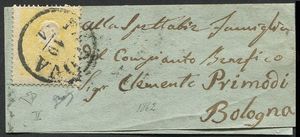 alla Spettabile Famiglia
il Compianto Benefico
Sigr Clemente Primodi
Bologna
1862